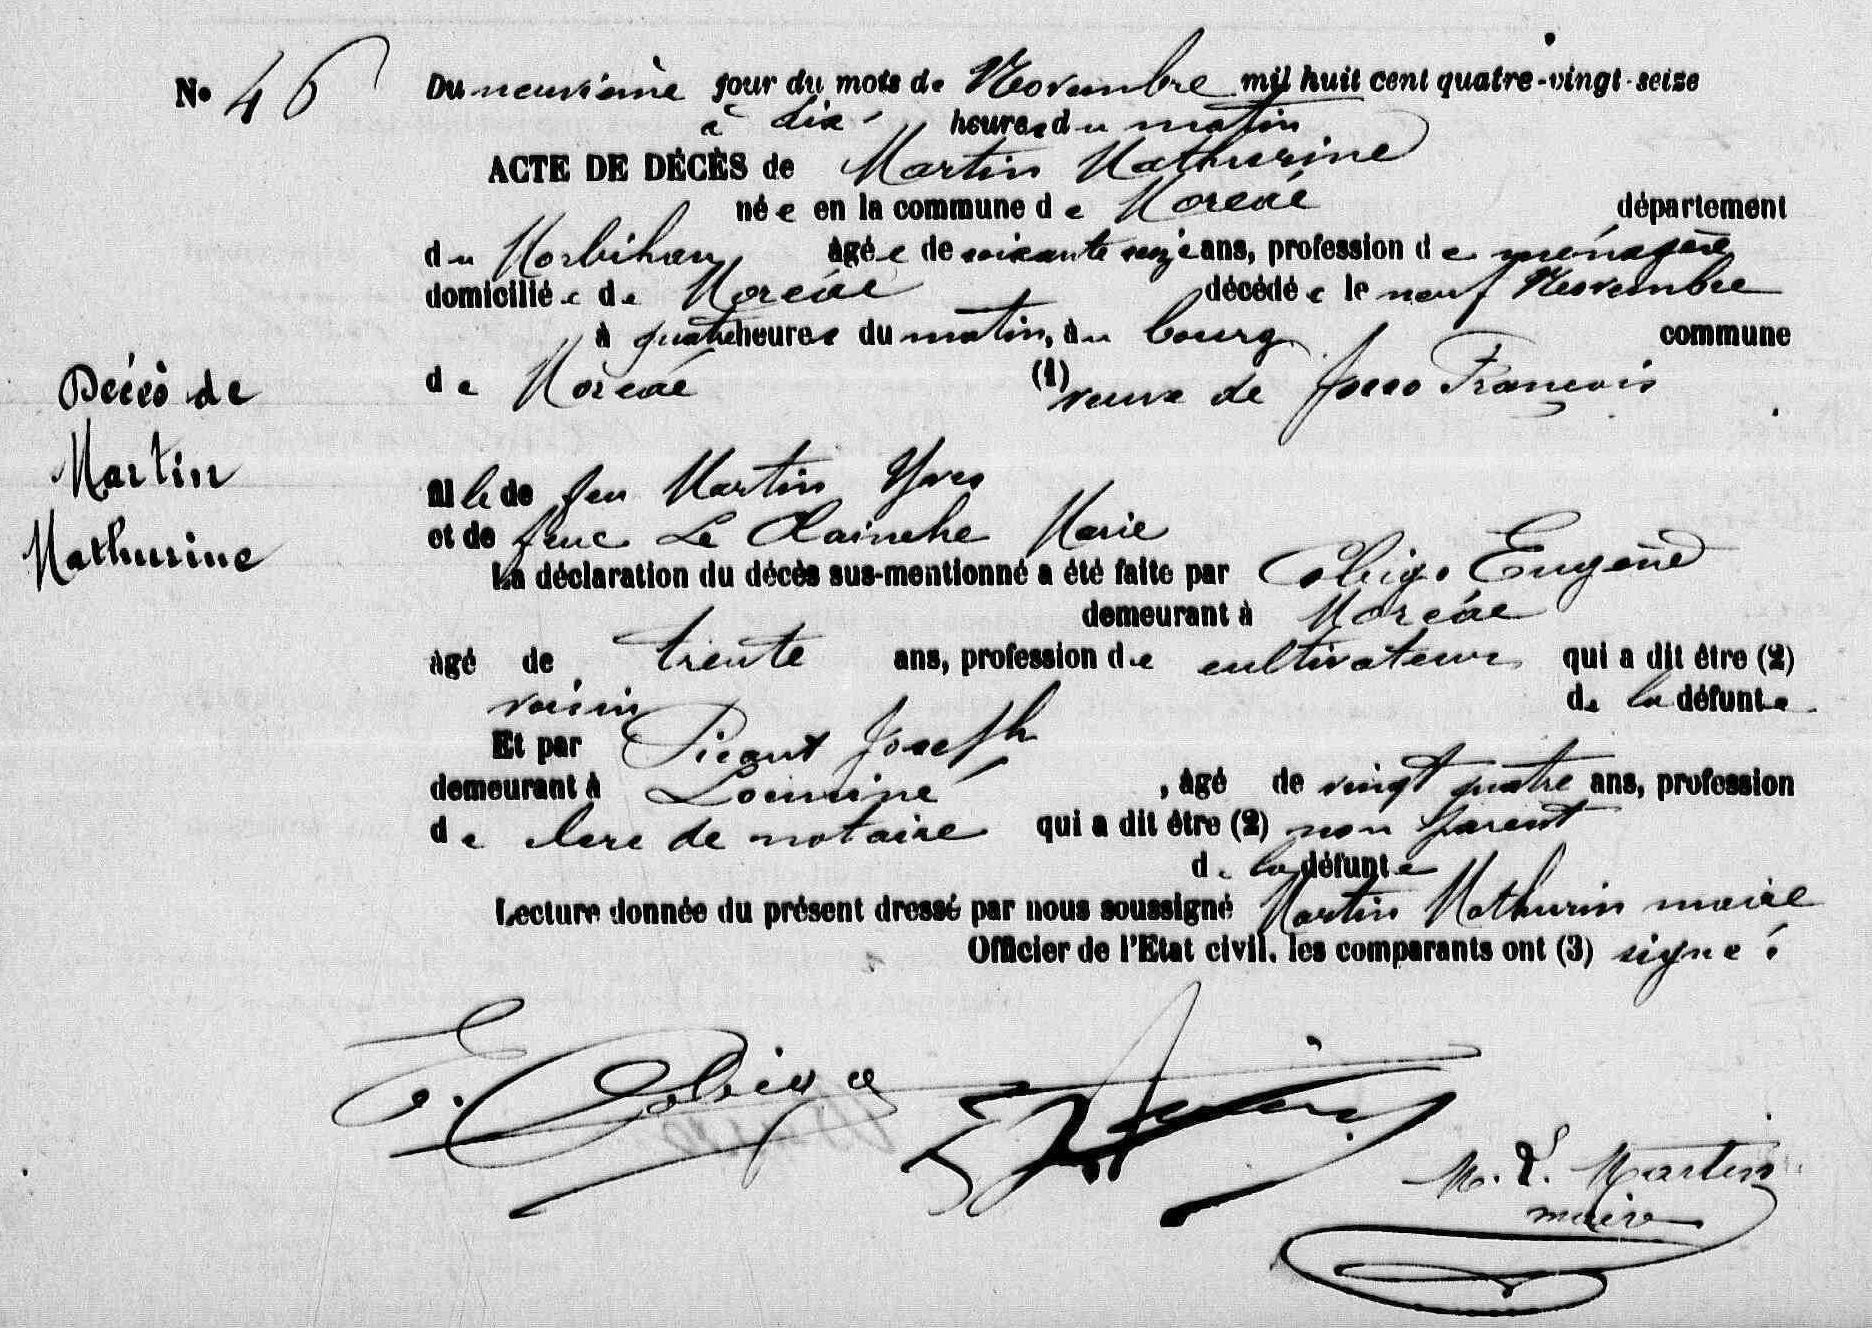 No 46
Du neuvième jour du mois de Novembre mil huit cent quatre-vingt-seize
à dix heures du matin
ACTE DE DÉCÈS de Martin Mathurine
née en la commune de Moréac département
du Morbihan âgée de soixante seize ans, profession de ménagère
domiciliée de Moréac décédée le neuf Novembre
à quatre heures du matin, au bourg commune
de Moréac (1) veuve de Josso François
Décès de
Martin
Mathurine
fille de feu Martin Yves
et de feue Le Clainche Marie
La déclaration du décès sus-mentionné a été faite par Cobigo Eugène
demeurant à Moréac
âgé de trente ans, profession de cultivateur qui a dit être (2)
voisin de la défunte
Et par Picaut Joseph
demeurant à Locminé, âgé de vingt quatre ans, profession
de clerc de notaire qui a dit être (2) non parent
de la défunte
Lecture donnée du présent dressé par nous soussigné Martin Mathurin maire
Officier de l'Etat civil. les comparants ont (3) signé.
E. Cobigo
M. L. Martin
maire